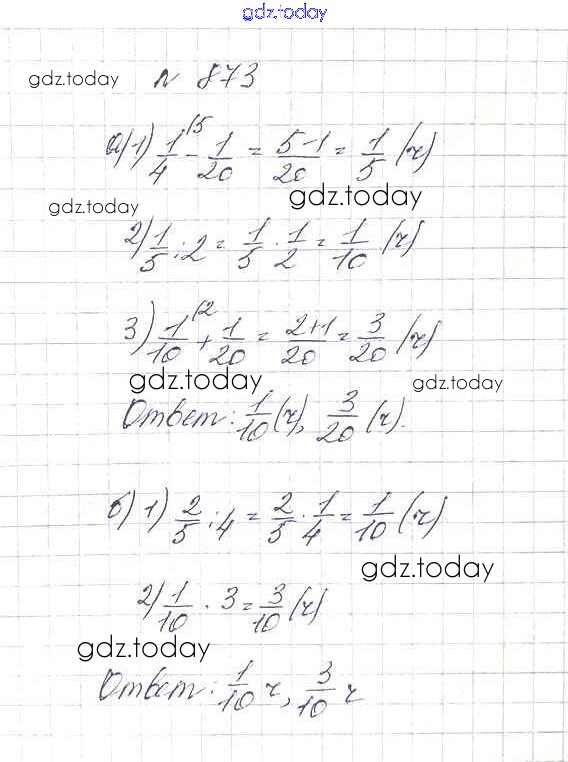 gdz.today
gdz.today
№ 873
а) 1) 1/4 \5 - 1/20 = 5-1/20 = 1/5 (ч)
gdz.today
gdz.today
2) 1/5 : 2 = 1/5 · 1/2 = 1/10 (ч)
3) 1/10 \2 + 1/20 = 2+1/20 = 3/20 (ч)
gdz.today
gdz.today
Ответ: 1/10 (ч), 3/20 (ч).
б) 1) 2/5 : 4 = 2/5 · 1/4 = 1/10 (ч)
gdz.today
2) 1/10 · 3 = 3/10 (ч)
gdz.today
Ответ: 1/10 ч, 3/10 ч
gdz.today